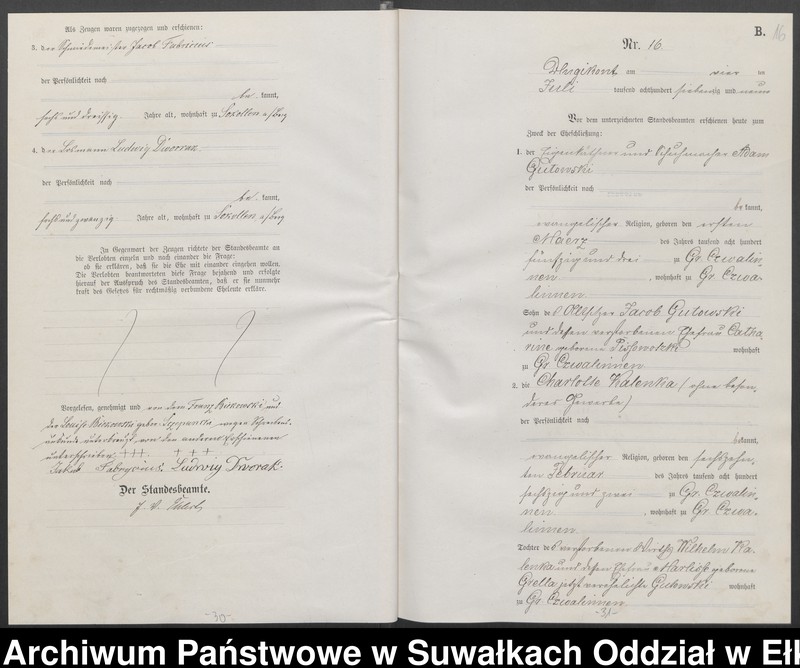 Als Zeugen waren zugezogen und erschienen:
3. der Schmiedemeister Jacob Fabricius
der Persönlichkeit nach
be kannt,
sechs und dreissig Jahre alt, wohnhaft zu Sokollen a/Berg
4. der Losmann Ludwig Dworak
der Persönlichkeit nach
be kannt,
sechs und zwanzig Jahre alt, wohnhaft zu Sokollen a/Berg
In Gegenwart der Zeugen richtete der Standesbeamte an
die Verlobten einzeln und nach einander die Frage:
ob sie erklären, daß sie die Ehe mit einander eingehen wollen.
Die Verlobten beantworteten diese Frage bejahend und erfolgte
hierauf der Ausspruch des Standesbeamten, daß er sie nunmehr
kraft des Gesetzes für rechtmäßig verbundene Eheleute erkläre.
Vorgelesen, genehmigt und von dem Franz und
der Louise geborene wegen Schreibens-
unkunde unterkreuzt, von den anderen Erschienenen
unterschrieben +++ +++
Jakob Fabrycius. Ludwig Dworak.
Der Standesbeamte.
-30-
B. 16
Nr. 16.
Dlugikont am vier ten
Juli tausend achthundert siebenzig und neun
Vor dem unterzeichneten Standesbeamten erschienen heute zum
Zweck der Eheschließung:
1. der Eigenkäthner und Schuhmacher Adam
Gutowski
der Persönlichkeit nach
be kannt,
evangelischer Religion, geboren den ersten
Maerz des Jahres tausend acht hundert
fünfzig und drei zu Gr. Czwalin-
nen, wohnhaft zu Gr. Czwa-
linnen
Sohn des Altsitzer Jacob Gutowski
und dessen verstorbenen Ehefrau Catha-
rine geborene wohnhaft
zu Gr. Czwalinnen
2. die Charlotte Kalenka (ohne beson-
deres Gewerbe)
der Persönlichkeit nach
bekannt,
evangelischer Religion, geboren den sechszehn-
ten Februar des Jahres tausend acht hundert
sechzig und zwei zu Gr. Czwalin-
nen, wohnhaft zu Gr. Czwa-
linnen
Tochter des verstorbenen Wirths Wilhelm Ka-
lenka und dessen Ehefrau geborene
Grella jetzt verehelichte Gutowski wohnhaft
zu Gr. Czwalinnen
-31-
Archiwum Państwowe w Suwałkach Oddział w Eł